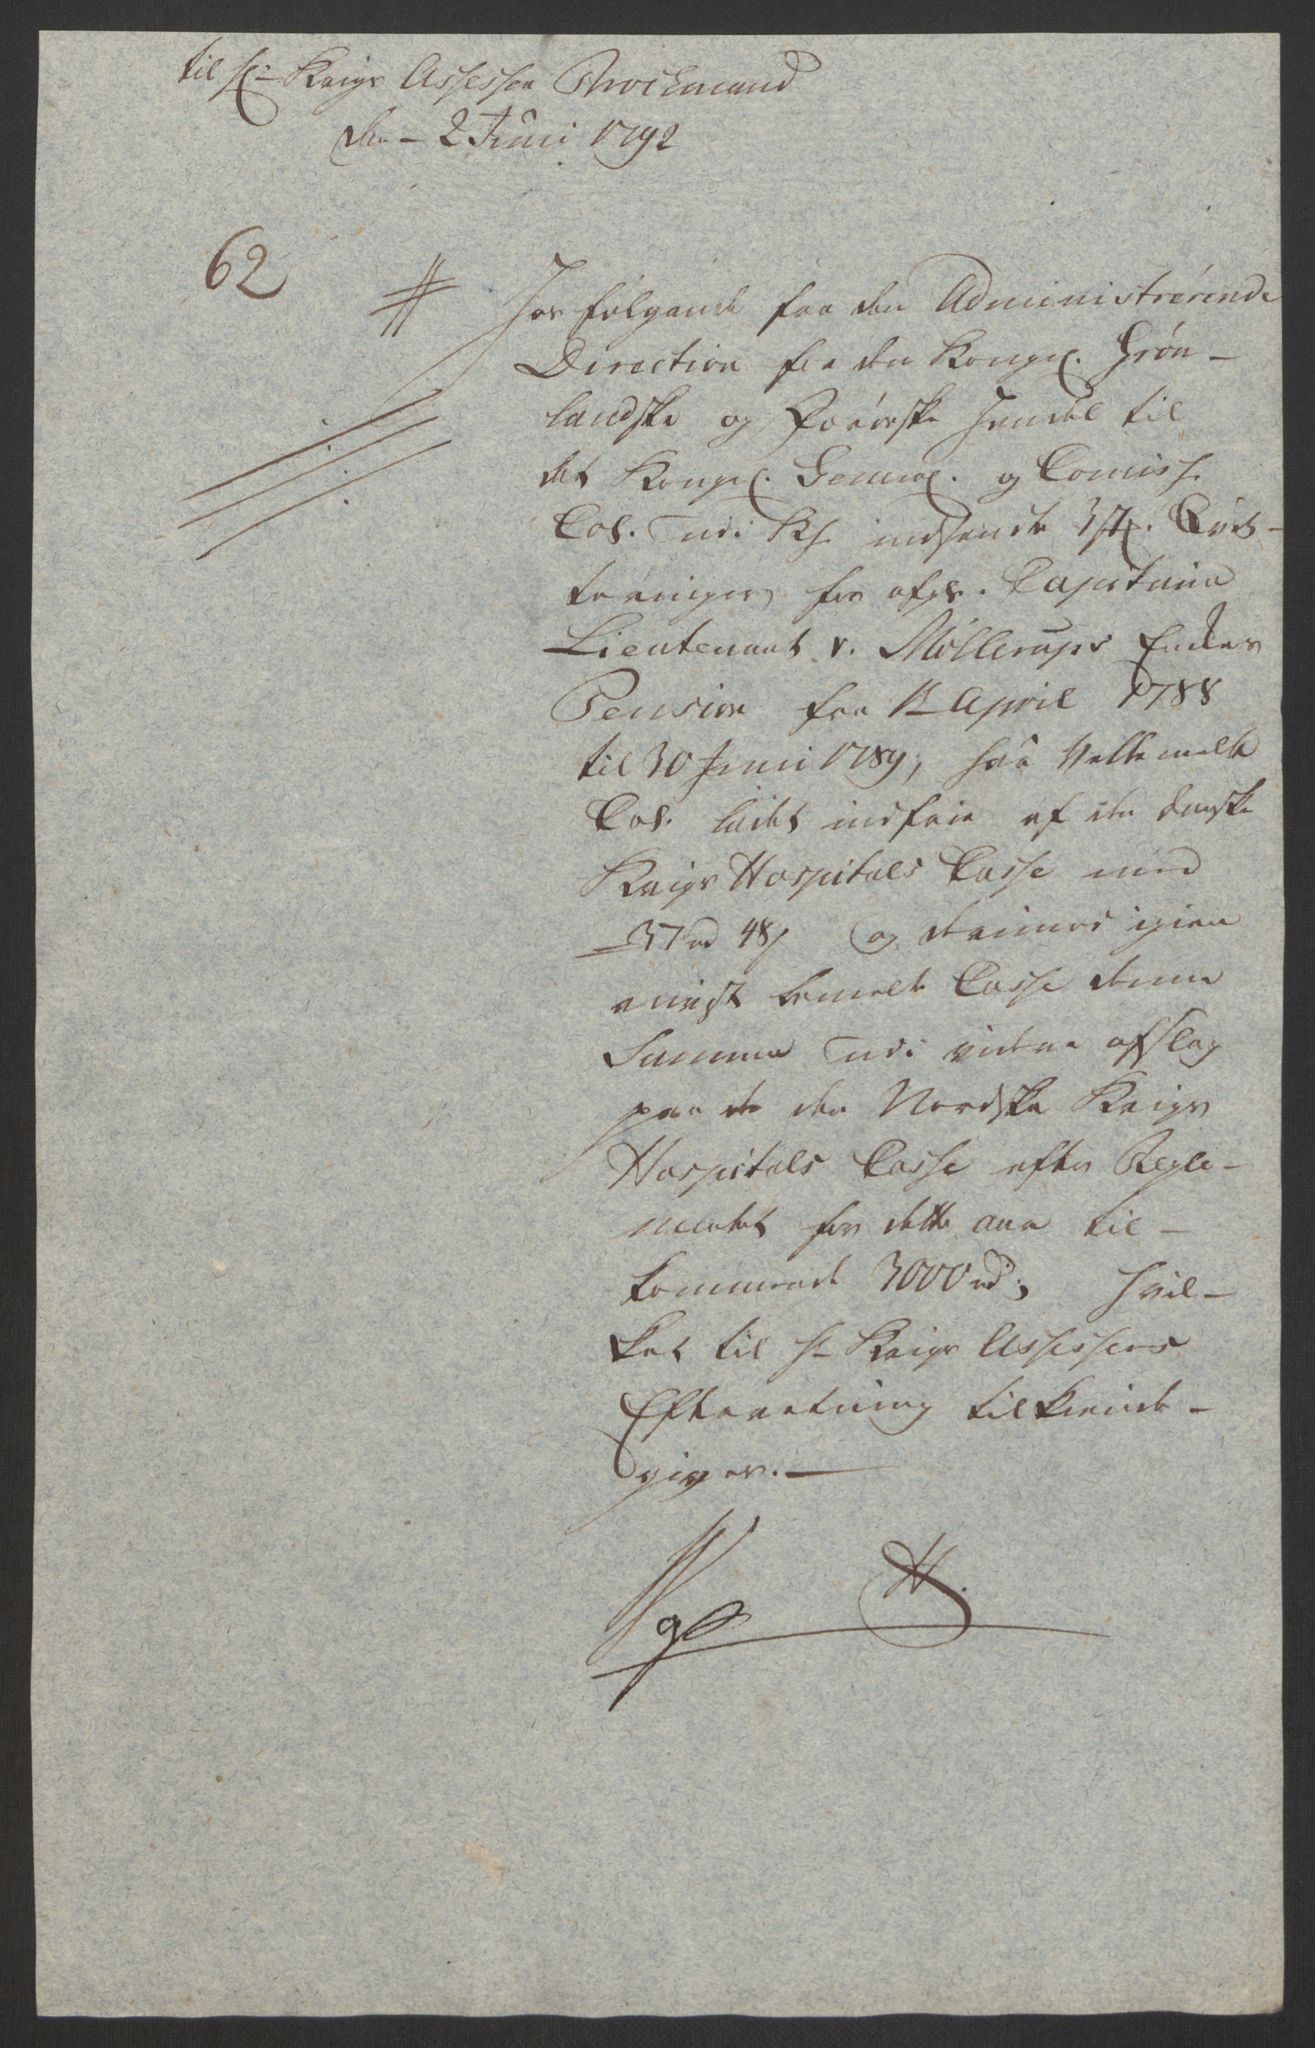 til H: Krigs Assessor Brockmand
den 2 Juni 1792
62
Hos følgende fra den Administrerende
Direction for den Kongel. Grøn-
landske og Færøeske Handel til
det Kongel. General. og Comiss.
Col. udi Kh. indsendte 3 st. Qvit-
teringer for afg. Capitain
Lieutenant v. Möllerups Enkes
Pension fra 1 April 1788
til 30 Juni 1789, har Velbemelte
Col. ladet indfrie af den danske
Krigs Hospitals Casse med
37 rd 48 s og derimod igien
anvist bemelte Casse denne
Summa udi videre afslag
paa de den Nordske Krigs
Hospitals Casse efter Regle-
mentet for dette aar til-
kommende 3000 rd; Hvil-
ket til H. Krigs Assessors
Efterretning tilkiende-
gives.
H.